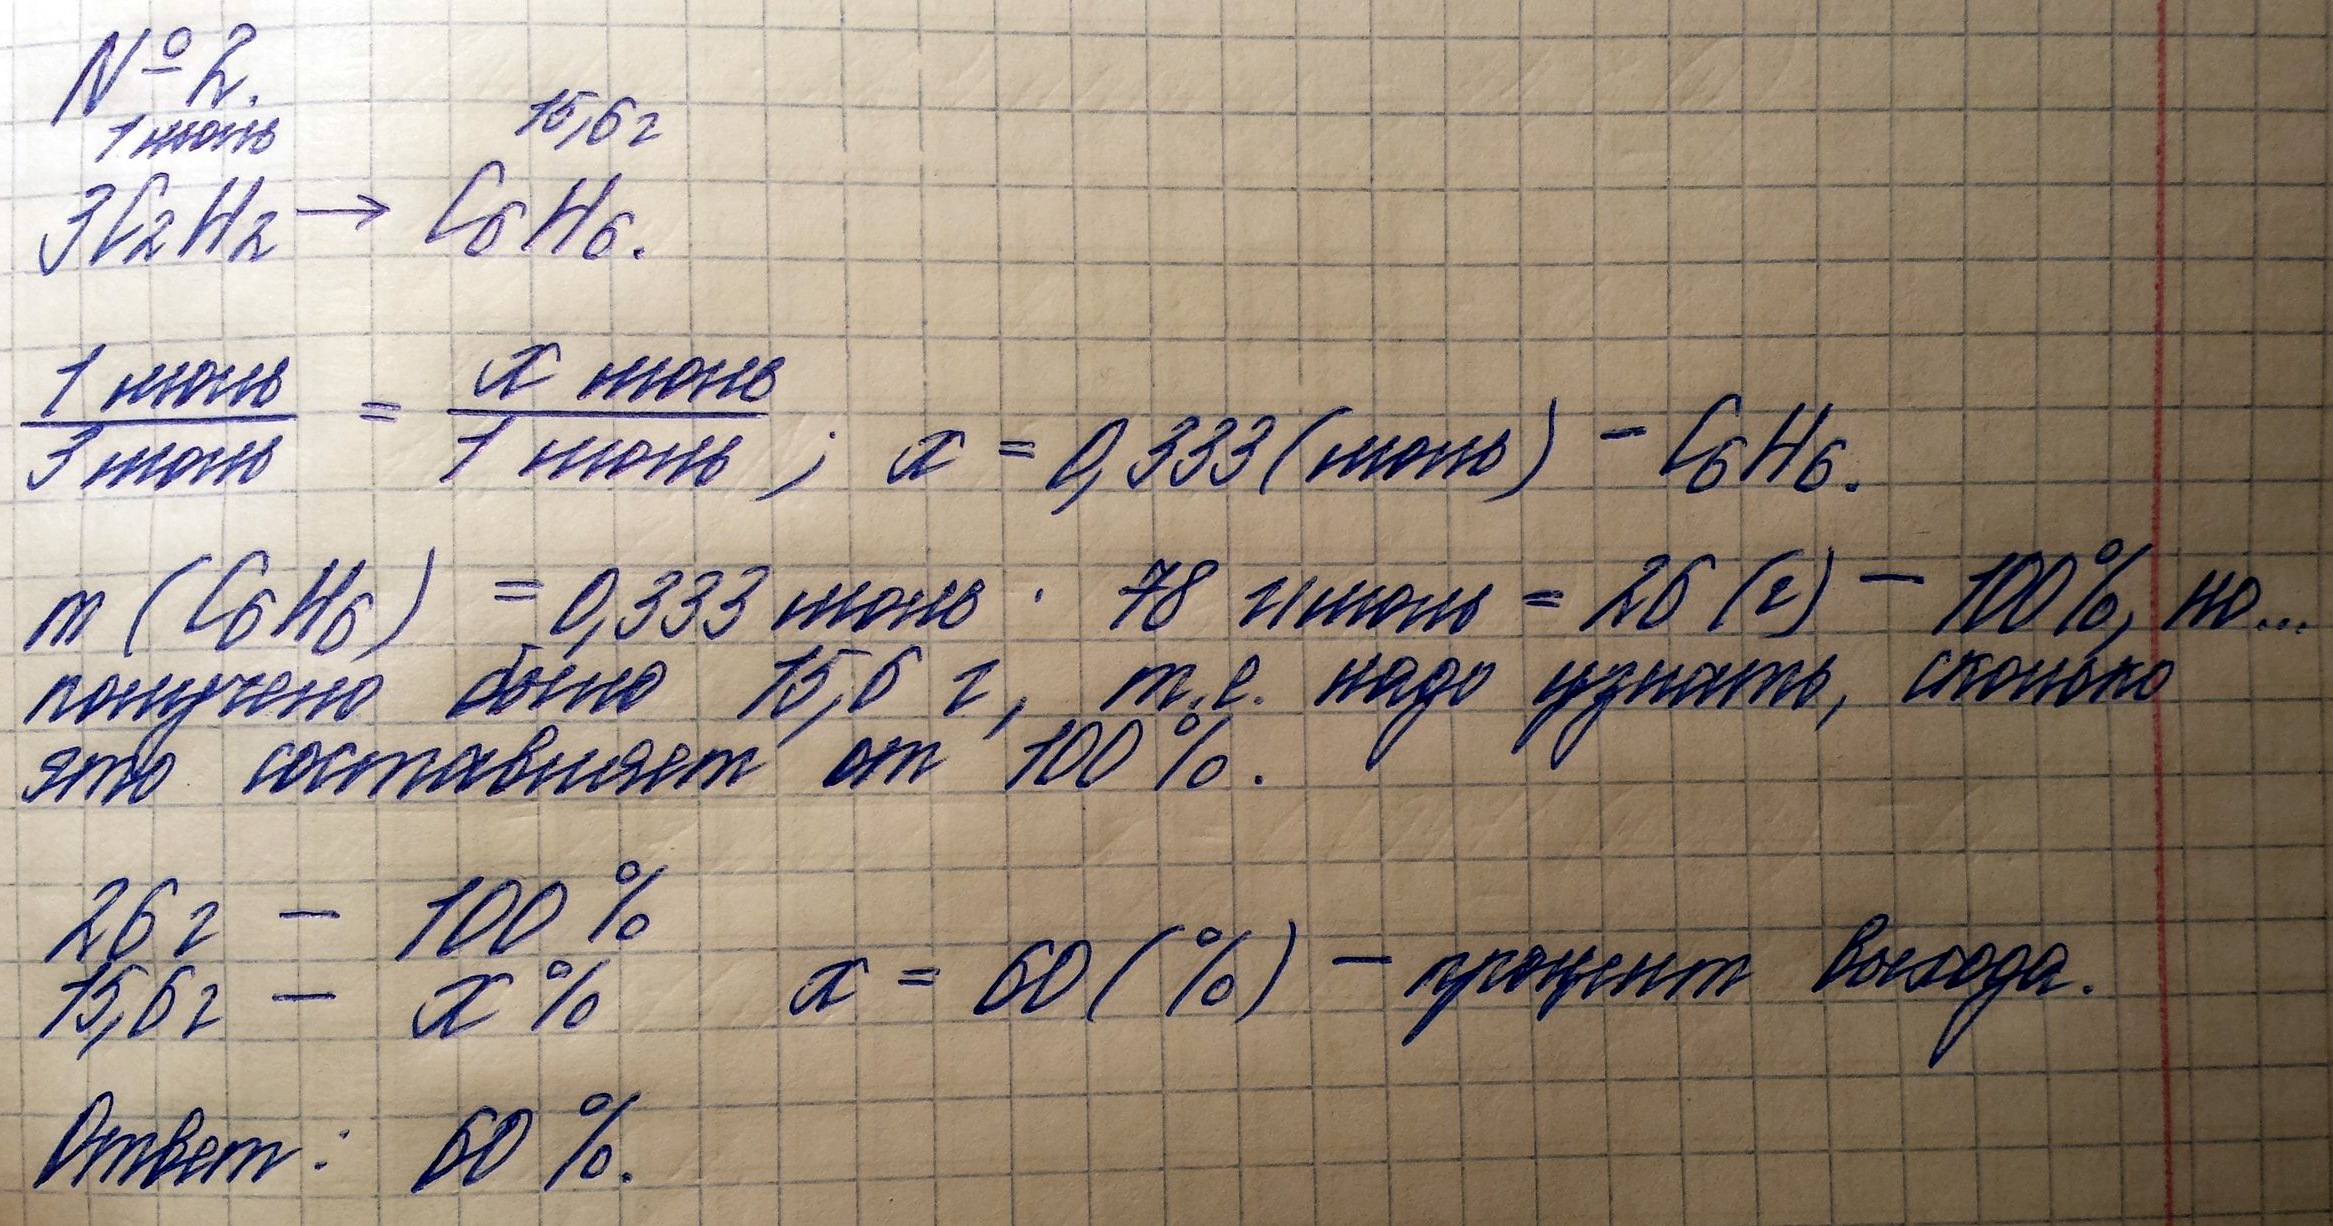 № 2.
1 моль 15,6 г
3C₂H₂ → C₆H₆.
1 моль / 3 моль = x моль / 1 моль ; x = 0,333 (моль) - C₆H₆.
m (C₆H₆) = 0,333 моль · 78 г/моль = 26 (г) - 100%, но...
получено было 15,6 г, т.е. надо узнать, сколько
это составляет от 100%.
26 г - 100%
15,6 г - x% x = 60 (%) - процент выхода.
Ответ: 60%.